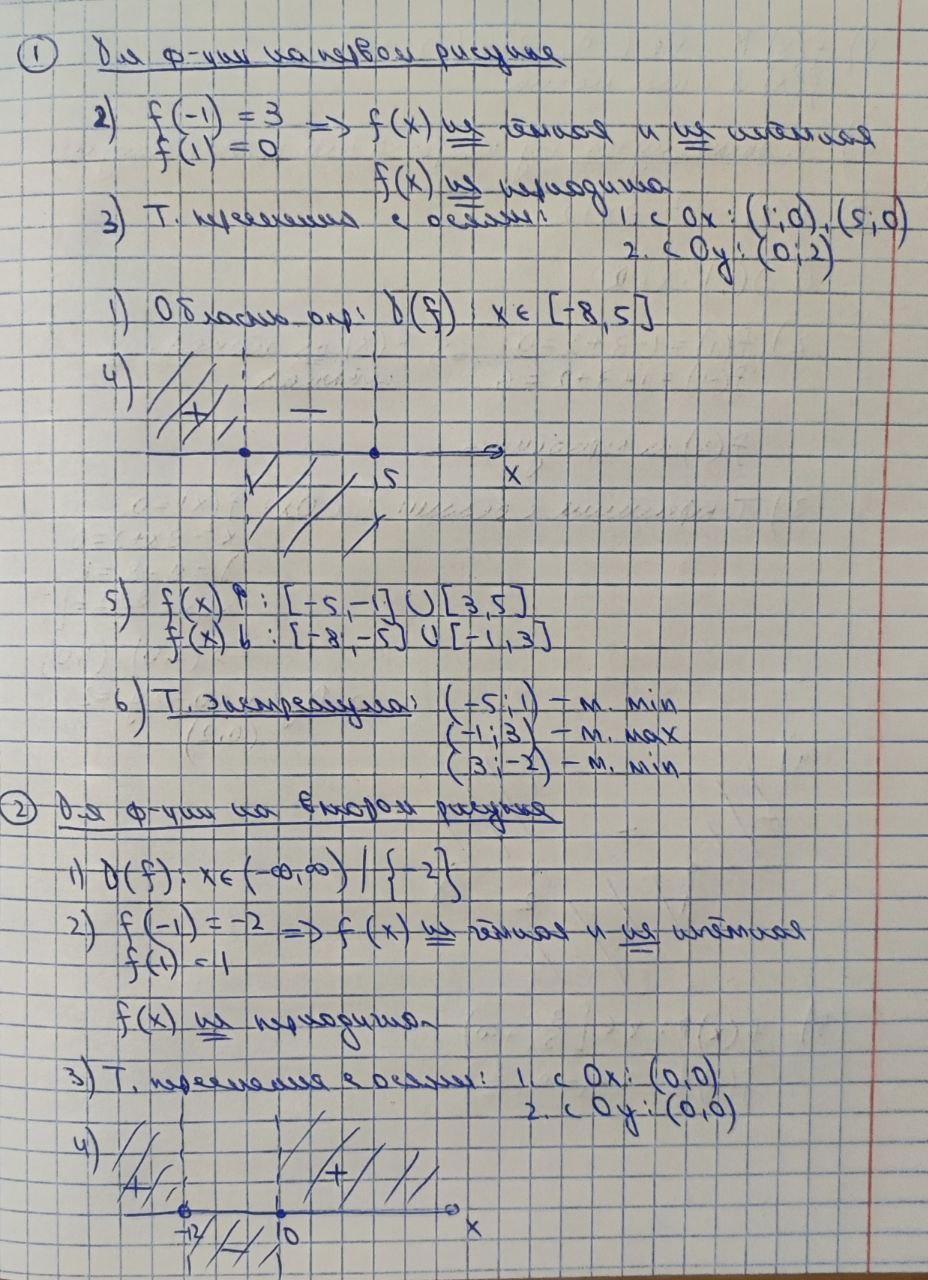 ① Для ф-ции на первом рисунке
2) f(-1) = 3 => f(x) не чётная и не нечётная
f(1) = 0
f(x) не периодична
3) Т. пересечения с осями: 1. с Ox: (1;0), (5;0)
2. с Oy: (0;2)
1) Область опр: D(f): x ∈ [-8, 5]
4) + −
1 5 x
5) f(x) ↑ : [-5,-1] ∪ [3,5]
f(x) ↓ : [-8,-5] ∪ [-1,3]
6) Т. экстремума: (-5;1) – т. min
(-1;3) – т. max
(3;-2) – т. min
② Для ф-ции на втором рисунке
1) D(f): x ∈ (-∞,∞) / {-2}
2) f(-1) = -2 => f(x) не чётная и не нечётная
f(1) = 1
f(x) не периодична
3) Т. пересечения с осями: 1. с Ox: (0,0)
2. с Oy: (0,0)
4) + +
-2 − 0 x